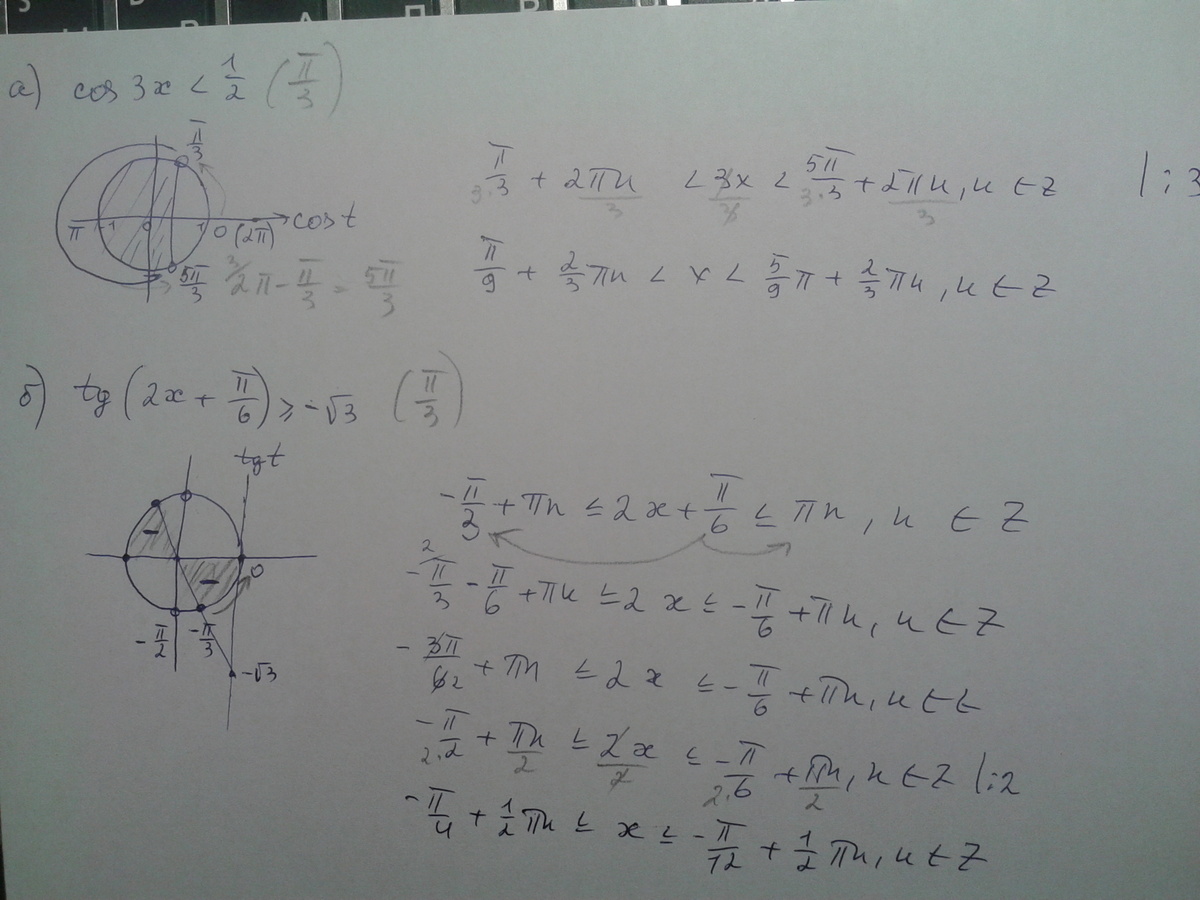 а) cos 3x < 1/2 (π/3)
π/3
π -1 0 1 0 (2π) cos t
5π/3 2π - π/3 = 5π/3
π/3·3 + 2πn/3 < 3x/3 < 5π/3·3 + 2πn/3, n ∈ Z | : 3
π/9 + 2/3 πn < x < 5/9 π + 2/3 πn, n ∈ Z
б) tg (2x + π/6) ≥ -√3 (π/3)
tg t
0
-π/2 -π/3
-√3
-π/3 + πn ≤ 2x + π/6 ≤ πn, n ∈ Z
-π/3 - π/6 + πn ≤ 2x ≤ -π/6 + πn, n ∈ Z
-3π/6 2 + πn ≤ 2x ≤ -π/6 + πn, n ∈ Z
-π/2·2 + πn/2 ≤ 2x/2 ≤ -π/2·6 + πn/2, n ∈ Z | : 2
-π/4 + 1/2 πn ≤ x ≤ -π/12 + 1/2 πn, n ∈ Z